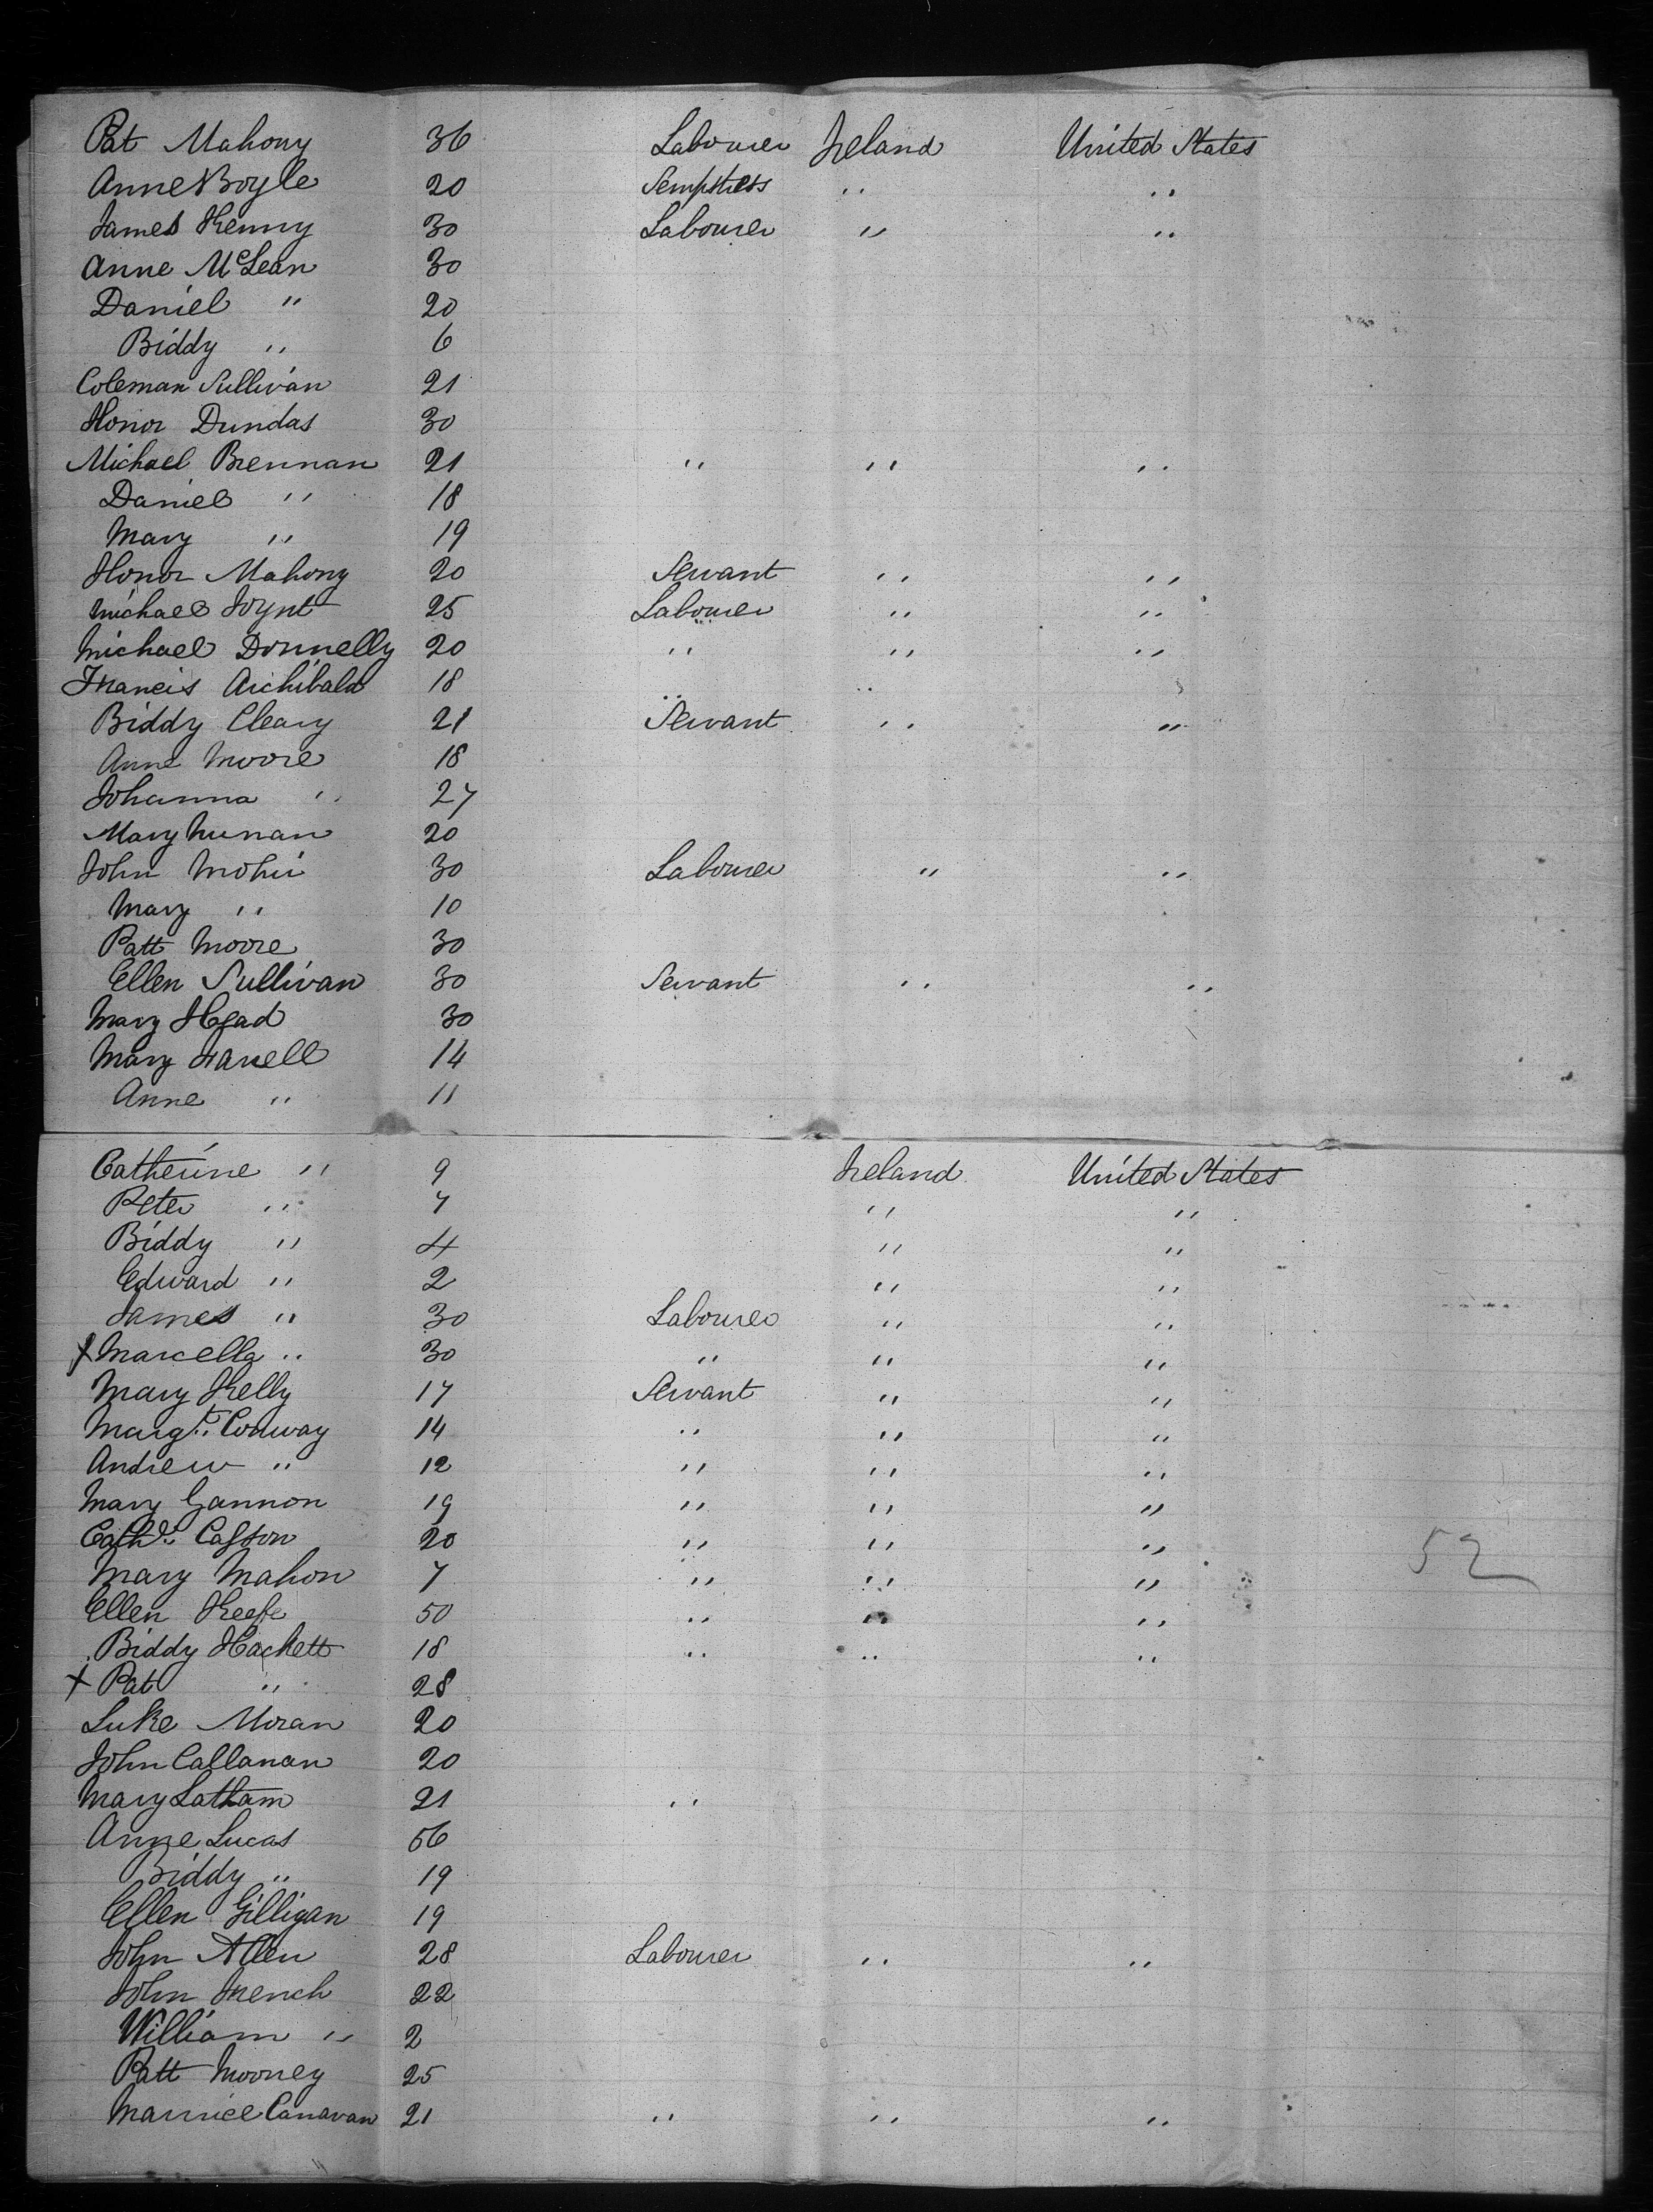 Pat Mahony 36 Labourer Ireland United States
Anne Boyle 20 Sempstress " "
James Kenny 30 Labourer " "
Anne McLean 30
Daniel " 20
Biddy " 6
Coleman Sullivan 21
Honor Dundas 30
Michael Brennan 21 " " "
Daniel " 18
Mary " 19
Honor Mahony 20 Servant " "
Michael Joynt 25 Labourer " "
Michael Donnelly 20 " " "
Francis Archibald 18 " "
Biddy Cleary 21 Servant " "
Anne Moore 18
Johanna " 27
Mary Nunan 20
John Mohir 30 Labourer " "
Mary " 10
Patt Moore 30
Ellen Sullivan 30 Servant " "
Mary Head 30
Mary Farrell 14
Anne " 11
Catherine " 9 Ireland United States
Peter " 7 " "
Biddy " 4 " "
Edward " 2 " "
James " 30 Labourer " "
x Marcella " 30 " " "
Mary Kelly 17 Servant " "
Margt. Conway 14 " " "
Andrew " 12 " " "
Mary Gannon 19 " " "
Cathe. 20 " " " 52
Mary Mahon 7 " " "
Ellen Keefe 50 " " "
Biddy Hackett 18 " " "
x Pat " 28
Luke Moran 20
John Callanan 20
Mary Latham 21 "
Anne Lucas 56
Biddy " 19
Ellen Gilligan 19
John Allen 28 Labourer " "
John French 22
William " 2
Patt Mooney 25
Maurice Canavan 21 " " "